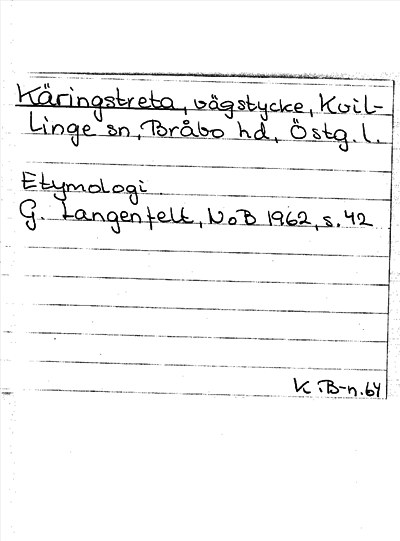 Käringstreta, vägstycke, Kvil-
linge sn, Bråbo hd, Östg. l.
Etymologi
G. Langenfelt, NoB 1962, s. 42
K B-n. 64